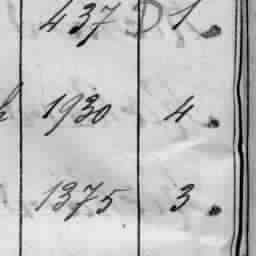 437 1.
1930 4.
1375 3.